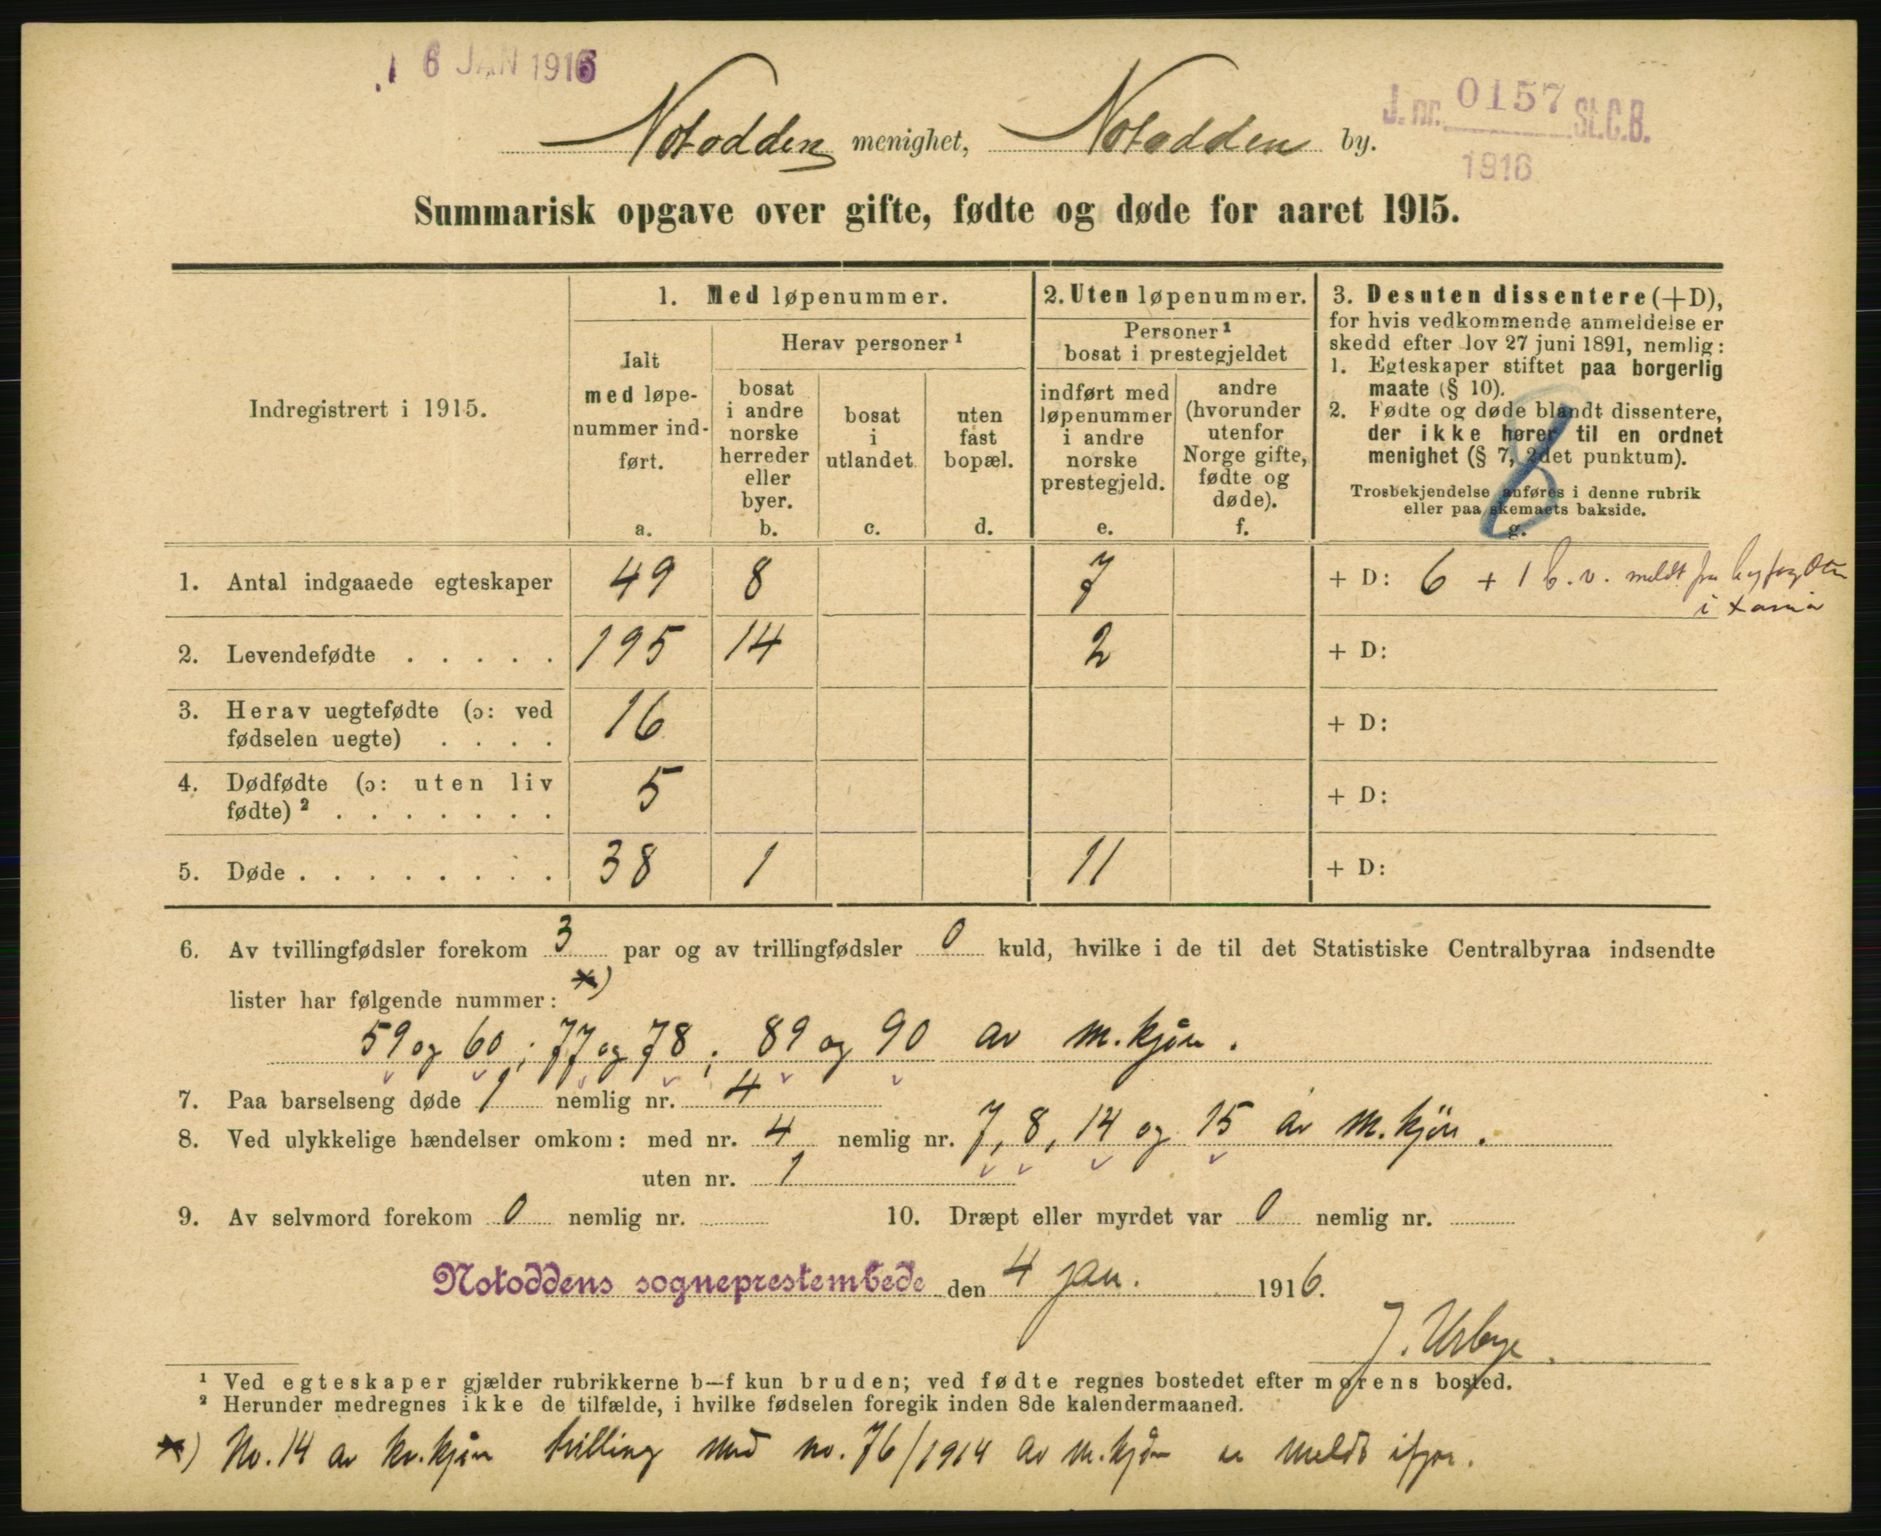 16 JAN 1916
J. nr. 0157 St.C.B.
1916
Notodden menighet, Notodden by.
Summarisk opgave over gifte, fødte og døde for aaret 1915.
Indregistrert i 1915.
1. Med løpenummer.
Ialt med løpenummer indført.
a.
Herav personer ¹
bosat i andre norske herreder eller byer.
b.
bosat i utlandet
c.
uten fast bopæl.
d.
2. Uten løpenummer.
Personer ¹ bosat i prestegjeldet
indført med løpenummer i andre norske prestegjeld.
e.
andre (hvorunder utenfor Norge gifte, fødte og døde).
f.
3. Desuten dissentere (+D),
for hvis vedkommende anmeldelse er
skedd efter lov 27 juni 1891, nemlig:
1. Egteskaper stiftet paa borgerlig
maate (§ 10).
2. Fødte og døde blandt dissentere,
der ikke hører til en ordnet
menighet (§ 7, 2det punktum).
Trosbekjendelse anføres i denne rubrik
eller paa skemaets bakside.
g.
8
1. Antal indgaaede egteskaper 49 8 7 + D: 6 + 1 b.v. meldt fra byfogden
i
2. Levendefødte . . . . . 195 14 2 + D:
3. Herav uegtefødte (ɔ: ved
fødselen uegte) . . . . 16 + D:
4. Dødfødte (ɔ: uten liv
fødte) ² . . . . . . . 5 + D:
5. Døde . . . . . . . . 38 1 11 + D:
6. Av tvillingfødsler forekom 3 par og av trillingfødsler 0 kuld, hvilke i de til det Statistiske Centralbyraa indsendte
lister har følgende nummer: *)
59 og 60; 77 og 78; 89 og 90 av m.kjøn.
7. Paa barselseng døde 1 nemlig nr. 4
8. Ved ulykkelige hændelser omkom: med nr. 4 nemlig nr. 7, 8, 14 og 15 av m.kjön.
uten nr. 1
9. Av selvmord forekom 0 nemlig nr.
10. Dræpt eller myrdet var 0 nemlig nr.
Notoddens sogneprestembede den 4 jan. 1916.
J. Urbye.
¹ Ved egteskaper gjælder rubrikkerne b—f kun bruden; ved fødte regnes bostedet efter morens bosted.
² Herunder medregnes ikke de tilfælde, i hvilke fødselen foregik inden 8de kalendermaaned.
*) No. 14 av kv.kjøn tvilling med no. 76/1914 av m.kjøn er meldt ifjor.